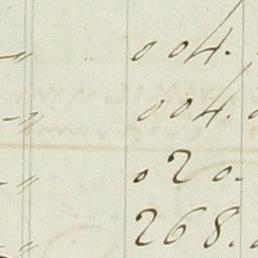 — 〃 004.
— 〃 004.
— 〃 020.
— 〃 268.